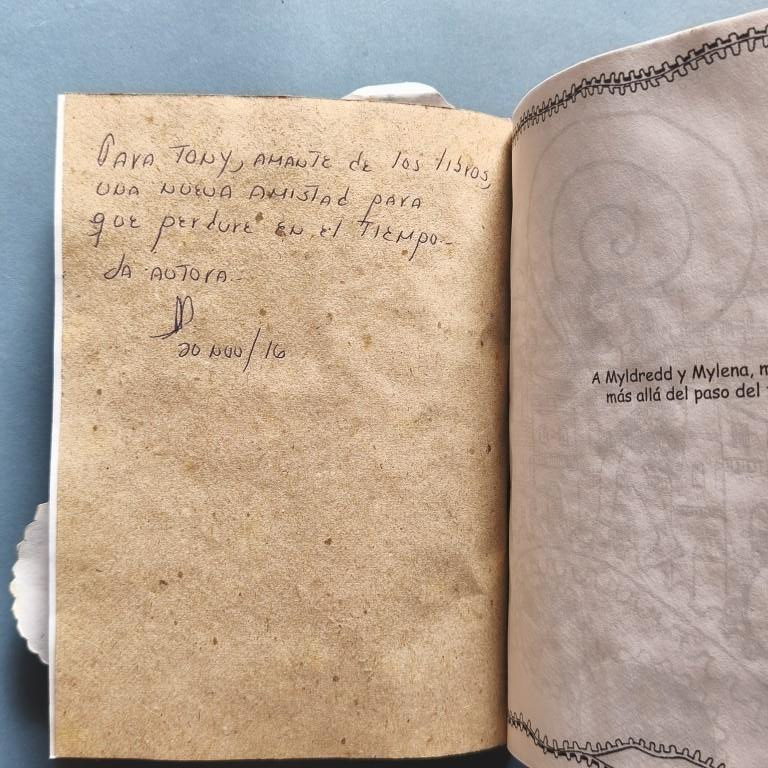 Para Tony, amante de los libros,
una nueva amistad para
que perdure en el tiempo.-
La autora.-
20 Nov/16
A Myldredd y Mylena, m
más allá del paso del